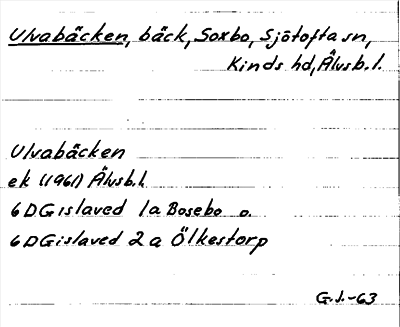 Ulvabäcken, bäck, Soxbo, Sjötofta sn,
Kinds hd, Älvsb. l.
Ulvabäcken
ek (1961) Älvsb. l.
6 D Gislaved 1a Bosebo o.
6 D Gislaved 2a Ölkestorp
G.J.-63